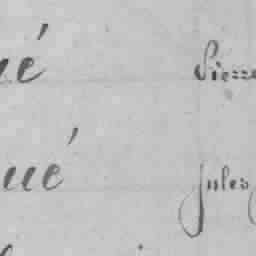 ué Pierre
ué Jules